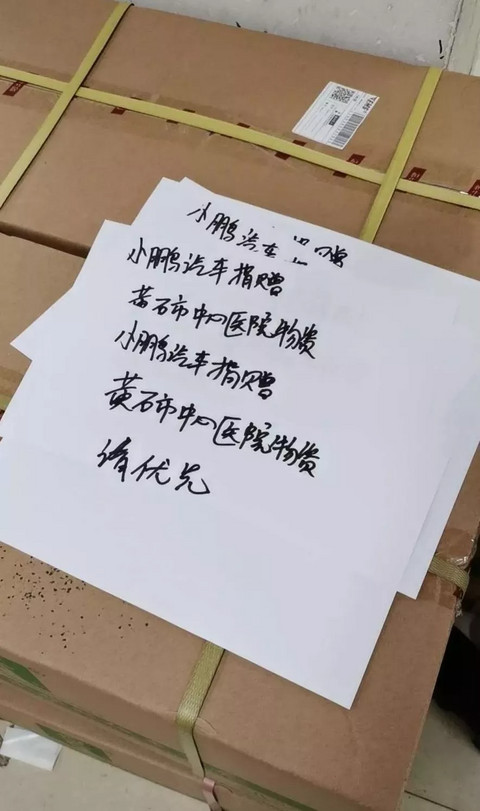 小鹏汽车 赠
小鹏汽车捐赠
黄石市中心医院物资
小鹏汽车捐赠
黄石市中心医院物资
请优先